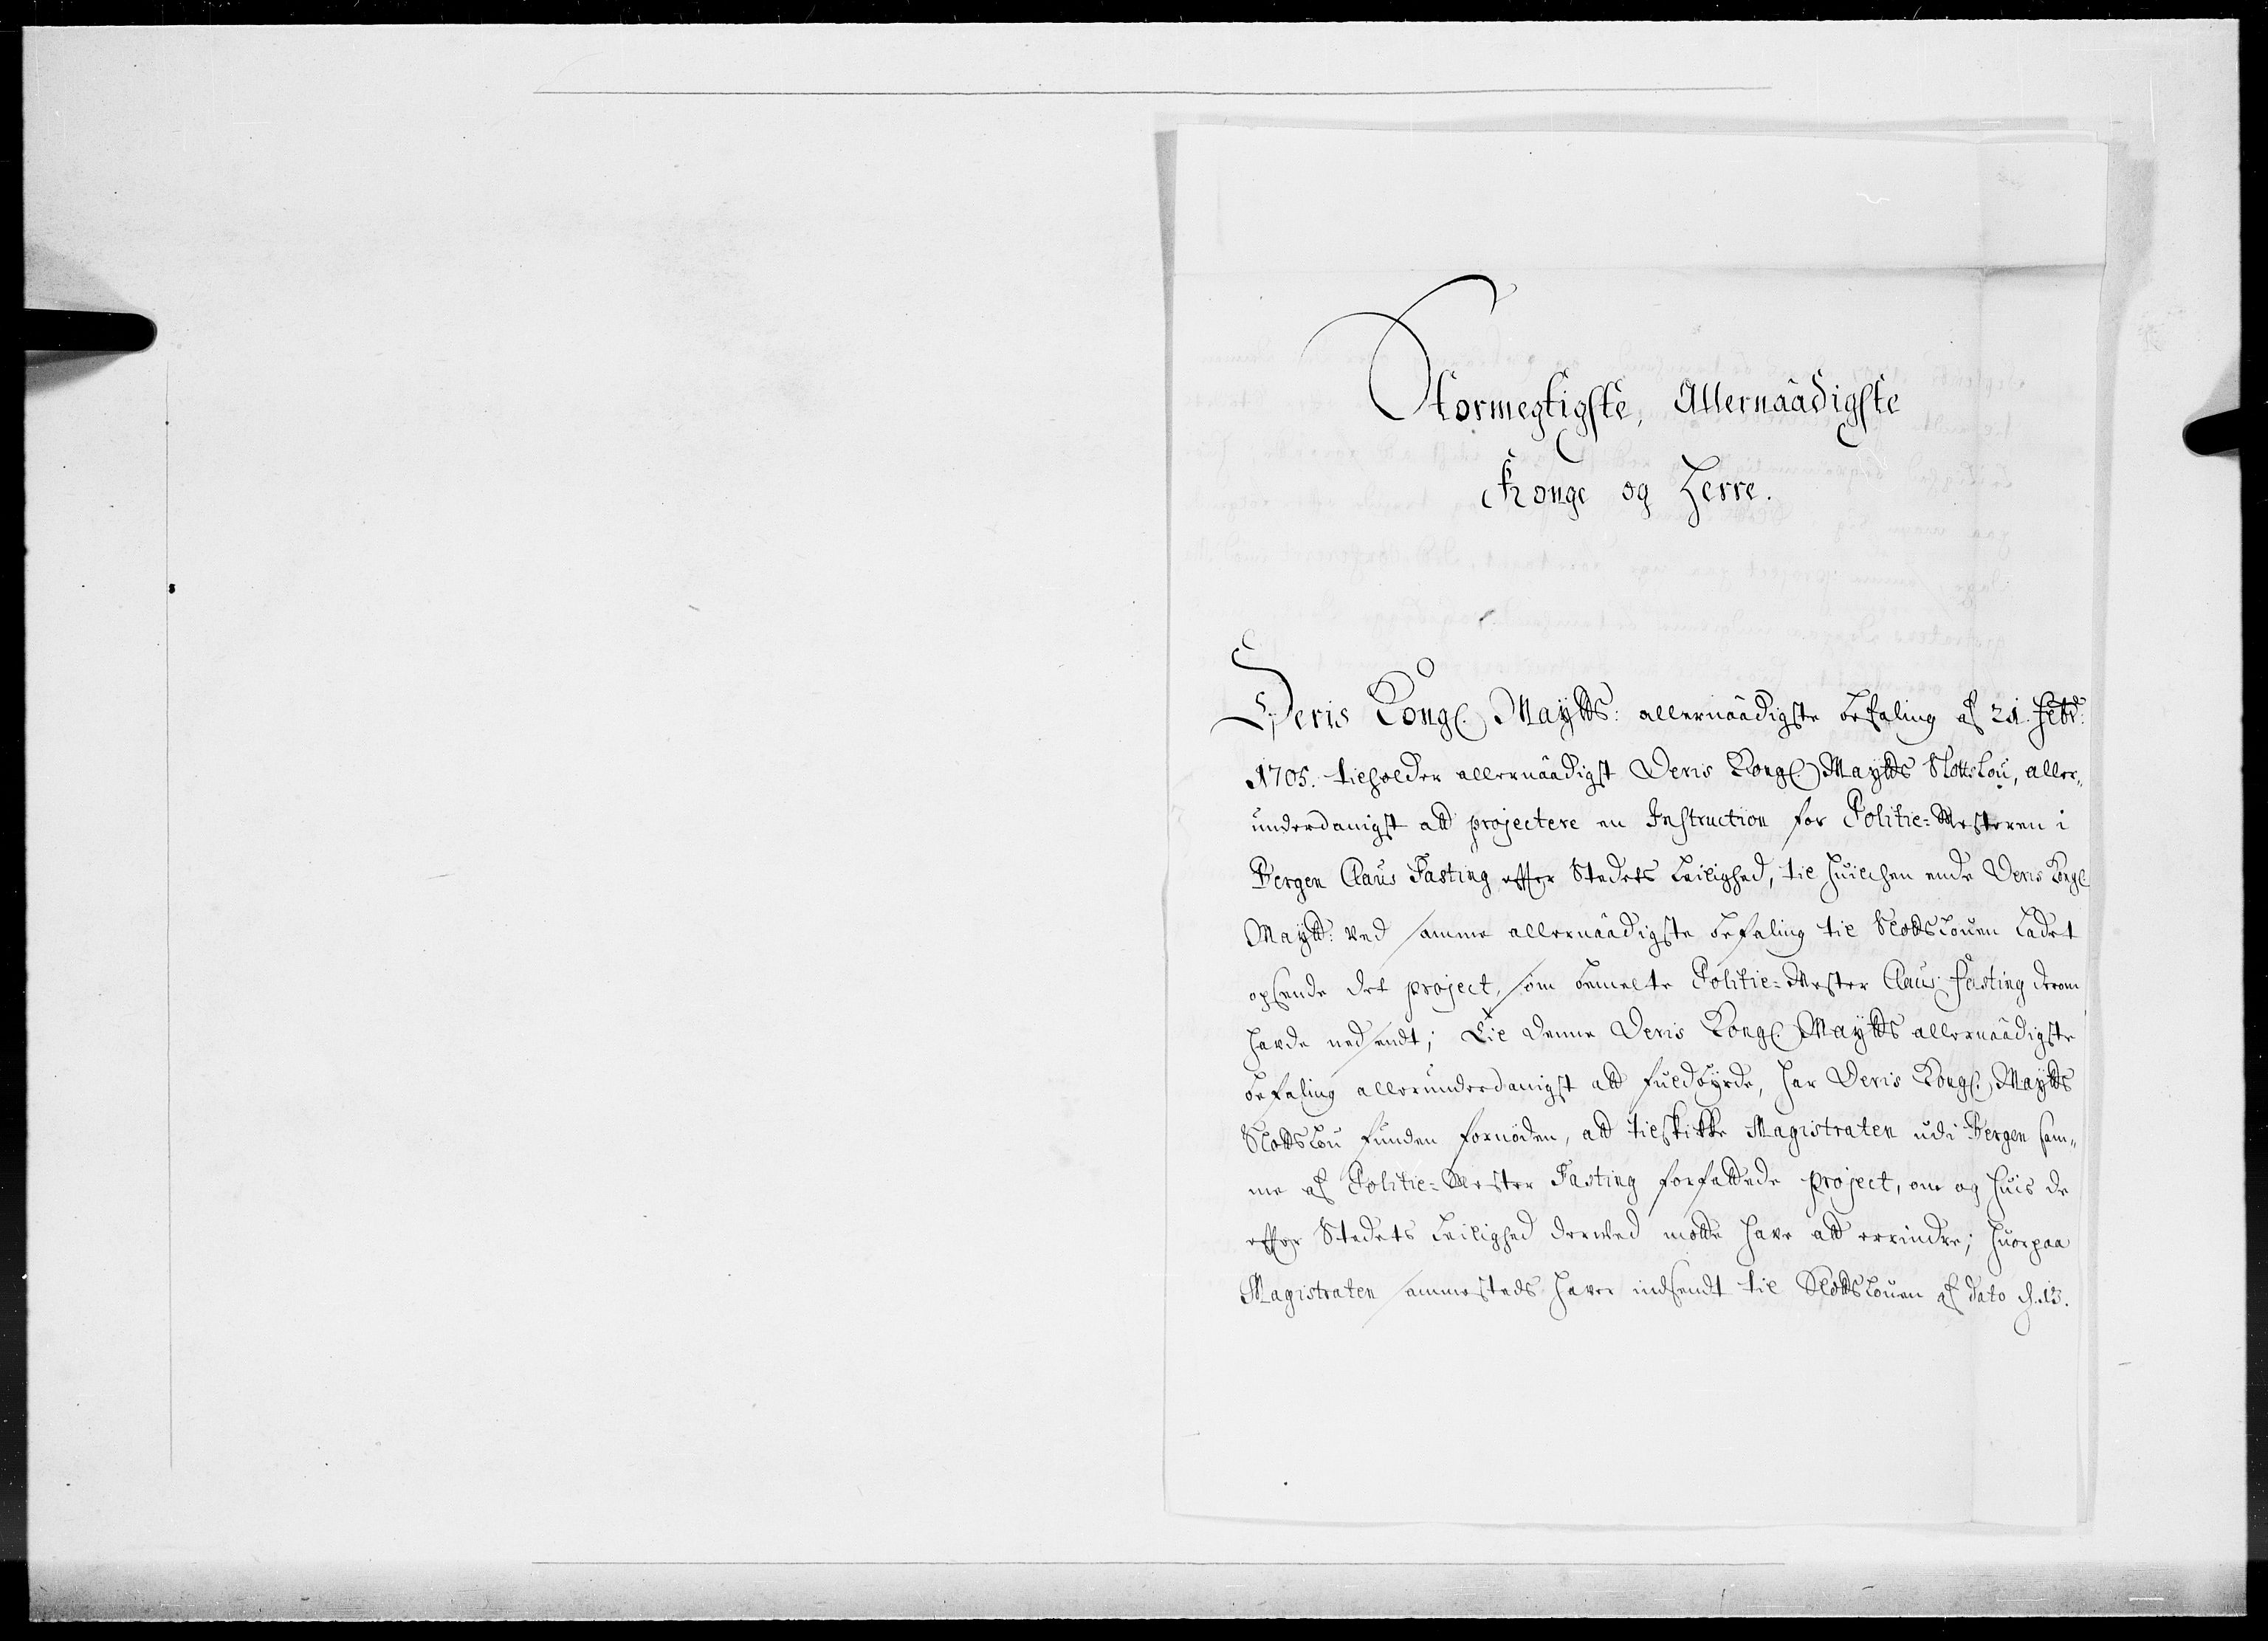 Stormegtigste, Allernaadigste
Konge og Herre.
Deris Kongl. Maytts: allernaadigste befaling af 21. Febr:
1705. tilholder allernaadigst Deris Kongl. Maytts Slottslou, aller„
underdanigst att projectere en Instruction for Politie-Mesteren i
Bergen Claus Fasting effter Stedets Leilighed, til huilchen ende Deris Kongl
Maytt: ved samme allernaadigste befaling til Slottslouen ladet
opsende det project, som bemelte Politie-Mester Claus Fasting derom
hafde nedsendt; Til denne Deris Kongl. Maytts allernaadigste
befaling allerunderdanigst att fuldbyrde, har Deris Kongl. Maytts
Slottslou funden fornöden, att tilskikke Magistraten udi Bergen sam„
me af Politie-Mester Fasting forfattede project, om og huis de
effter Stedets Leilighed derved motte have att errindre; huorpaa
Magistraten sammesteds haver indsendt til Slottslouen af dato d. 13.